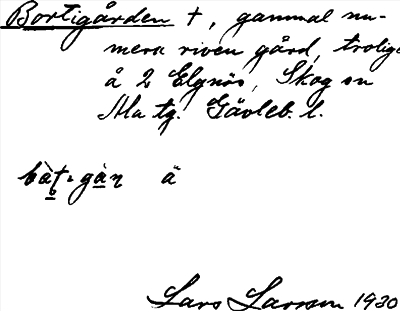 Bortigården †, gammal nu-
mera riven gård, trolige
å 2 Elgnäs, Skog sn
Ala tg. Gävleb. l.
bàt·gàn ä
Lars Larsson 1930